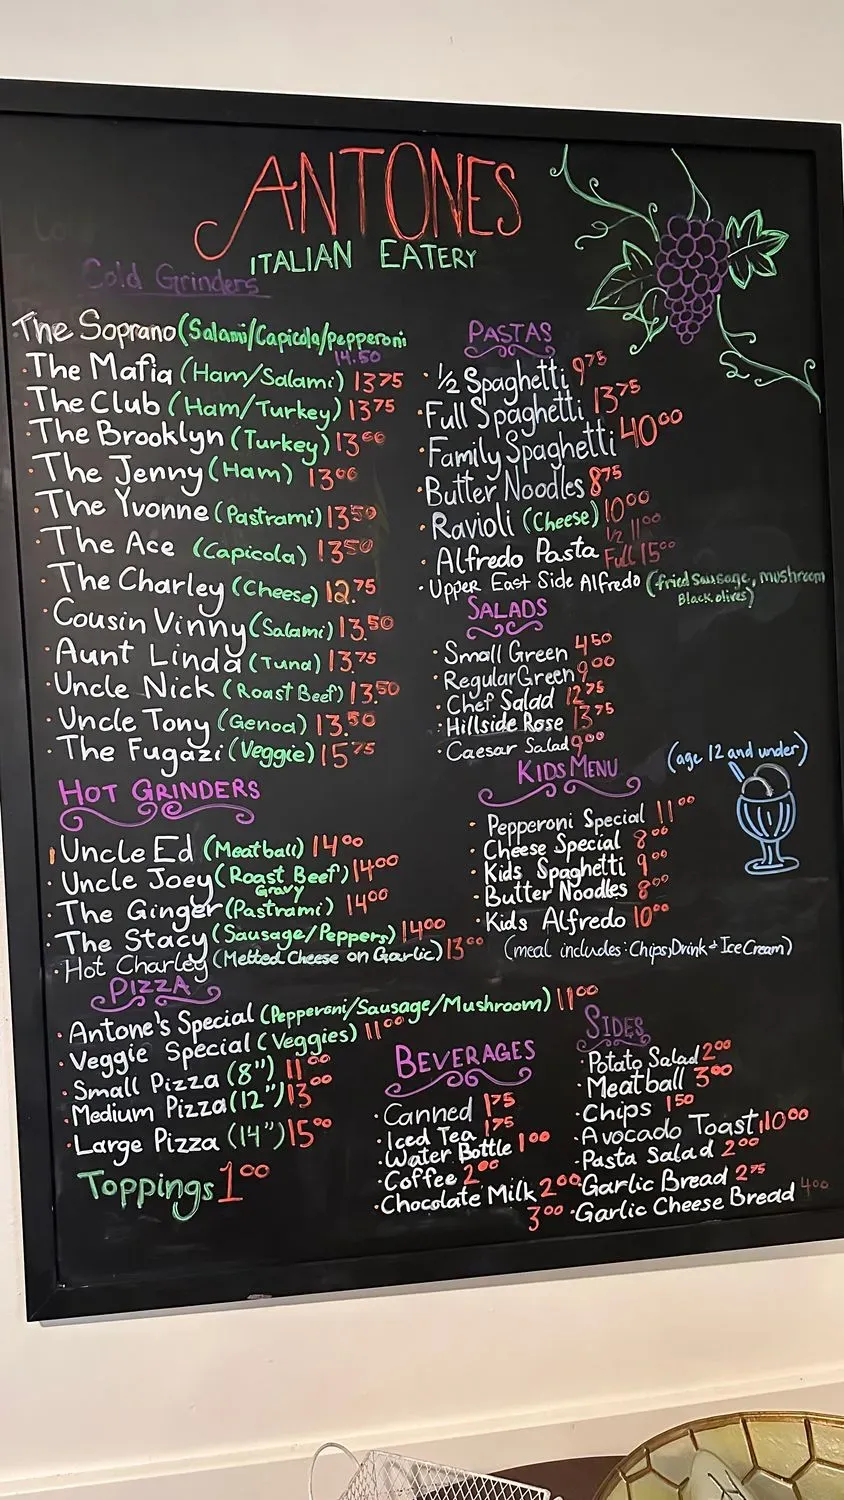 ANTONES
ITALIAN EATERY
Cold Grinders
The Soprano (Salami/Capicola/pepperoni
14.50
· The Mafia (Ham/Salami) 13 75
· The Club (Ham/Turkey) 13 75
· The Brooklyn (Turkey) 13 00
· The Jenny (Ham) 13 00
· The Yvonne (Pastrami) 13 50
· The Ace (Capicola) 13 50
· The Charley (Cheese) 12.75
· Cousin Vinny (Salami) 13.50
· Aunt Linda (Tuna) 13.75
· Uncle Nick (Roast Beef) 13.50
· Uncle Tony (Genoa) 13.50
· The Fugazi (Veggie) 15 75
HOT GRINDERS
Uncle Ed (Meatball) 14 00
· Uncle Joey (Roast Beef) 14 00
Gravy
· The Ginger (Pastrami) 14 00
· The Stacy (Sausage/Peppers) 14 00
· Hot Charley (Melted Cheese on Garlic) 13 00
PIZZA
· Antone's Special (Pepperoni/Sausage/Mushroom) 11 00
· Veggie Special (Veggies) 11 00
· Small Pizza (8") 11 00
· Medium Pizza (12") 13 00
· Large Pizza (14") 15 00
Toppings 1 00
PASTAS
· 1/2 Spaghetti 9 75
· Full Spaghetti 13 75
· Family Spaghetti 40 00
· Butter Noodles 8 75
· Ravioli (Cheese) 10 00
1/2 11 00
· Alfredo Pasta Full 15 00
· Upper East Side Alfredo (fried sausage, mushroom
Black olives)
SALADS
· Small Green 4 50
· Regular Green 9 00
· Chef Salad 12 75
· Hillside Rose 13 75
· Caesar Salad 9 00
KIDS MENU
(age 12 and under)
· Pepperoni Special 11 00
· Cheese Special 8 00
· Kids Spaghetti 9 00
· Butter Noodles 8 00
· Kids Alfredo 10 00
(meal includes: Chips, Drink + Ice Cream)
BEVERAGES
· Canned 1 75
· Iced Tea 1 75
· Water Bottle 1 00
· Coffee 2 00
· Chocolate Milk 2 00
3 00
SIDES
· Potato Salad 2 00
· Meatball 3 00
· Chips 1 50
· Avocado Toast 10 00
· Pasta Salad 2 00
· Garlic Bread 2 75
· Garlic Cheese Bread 4 00